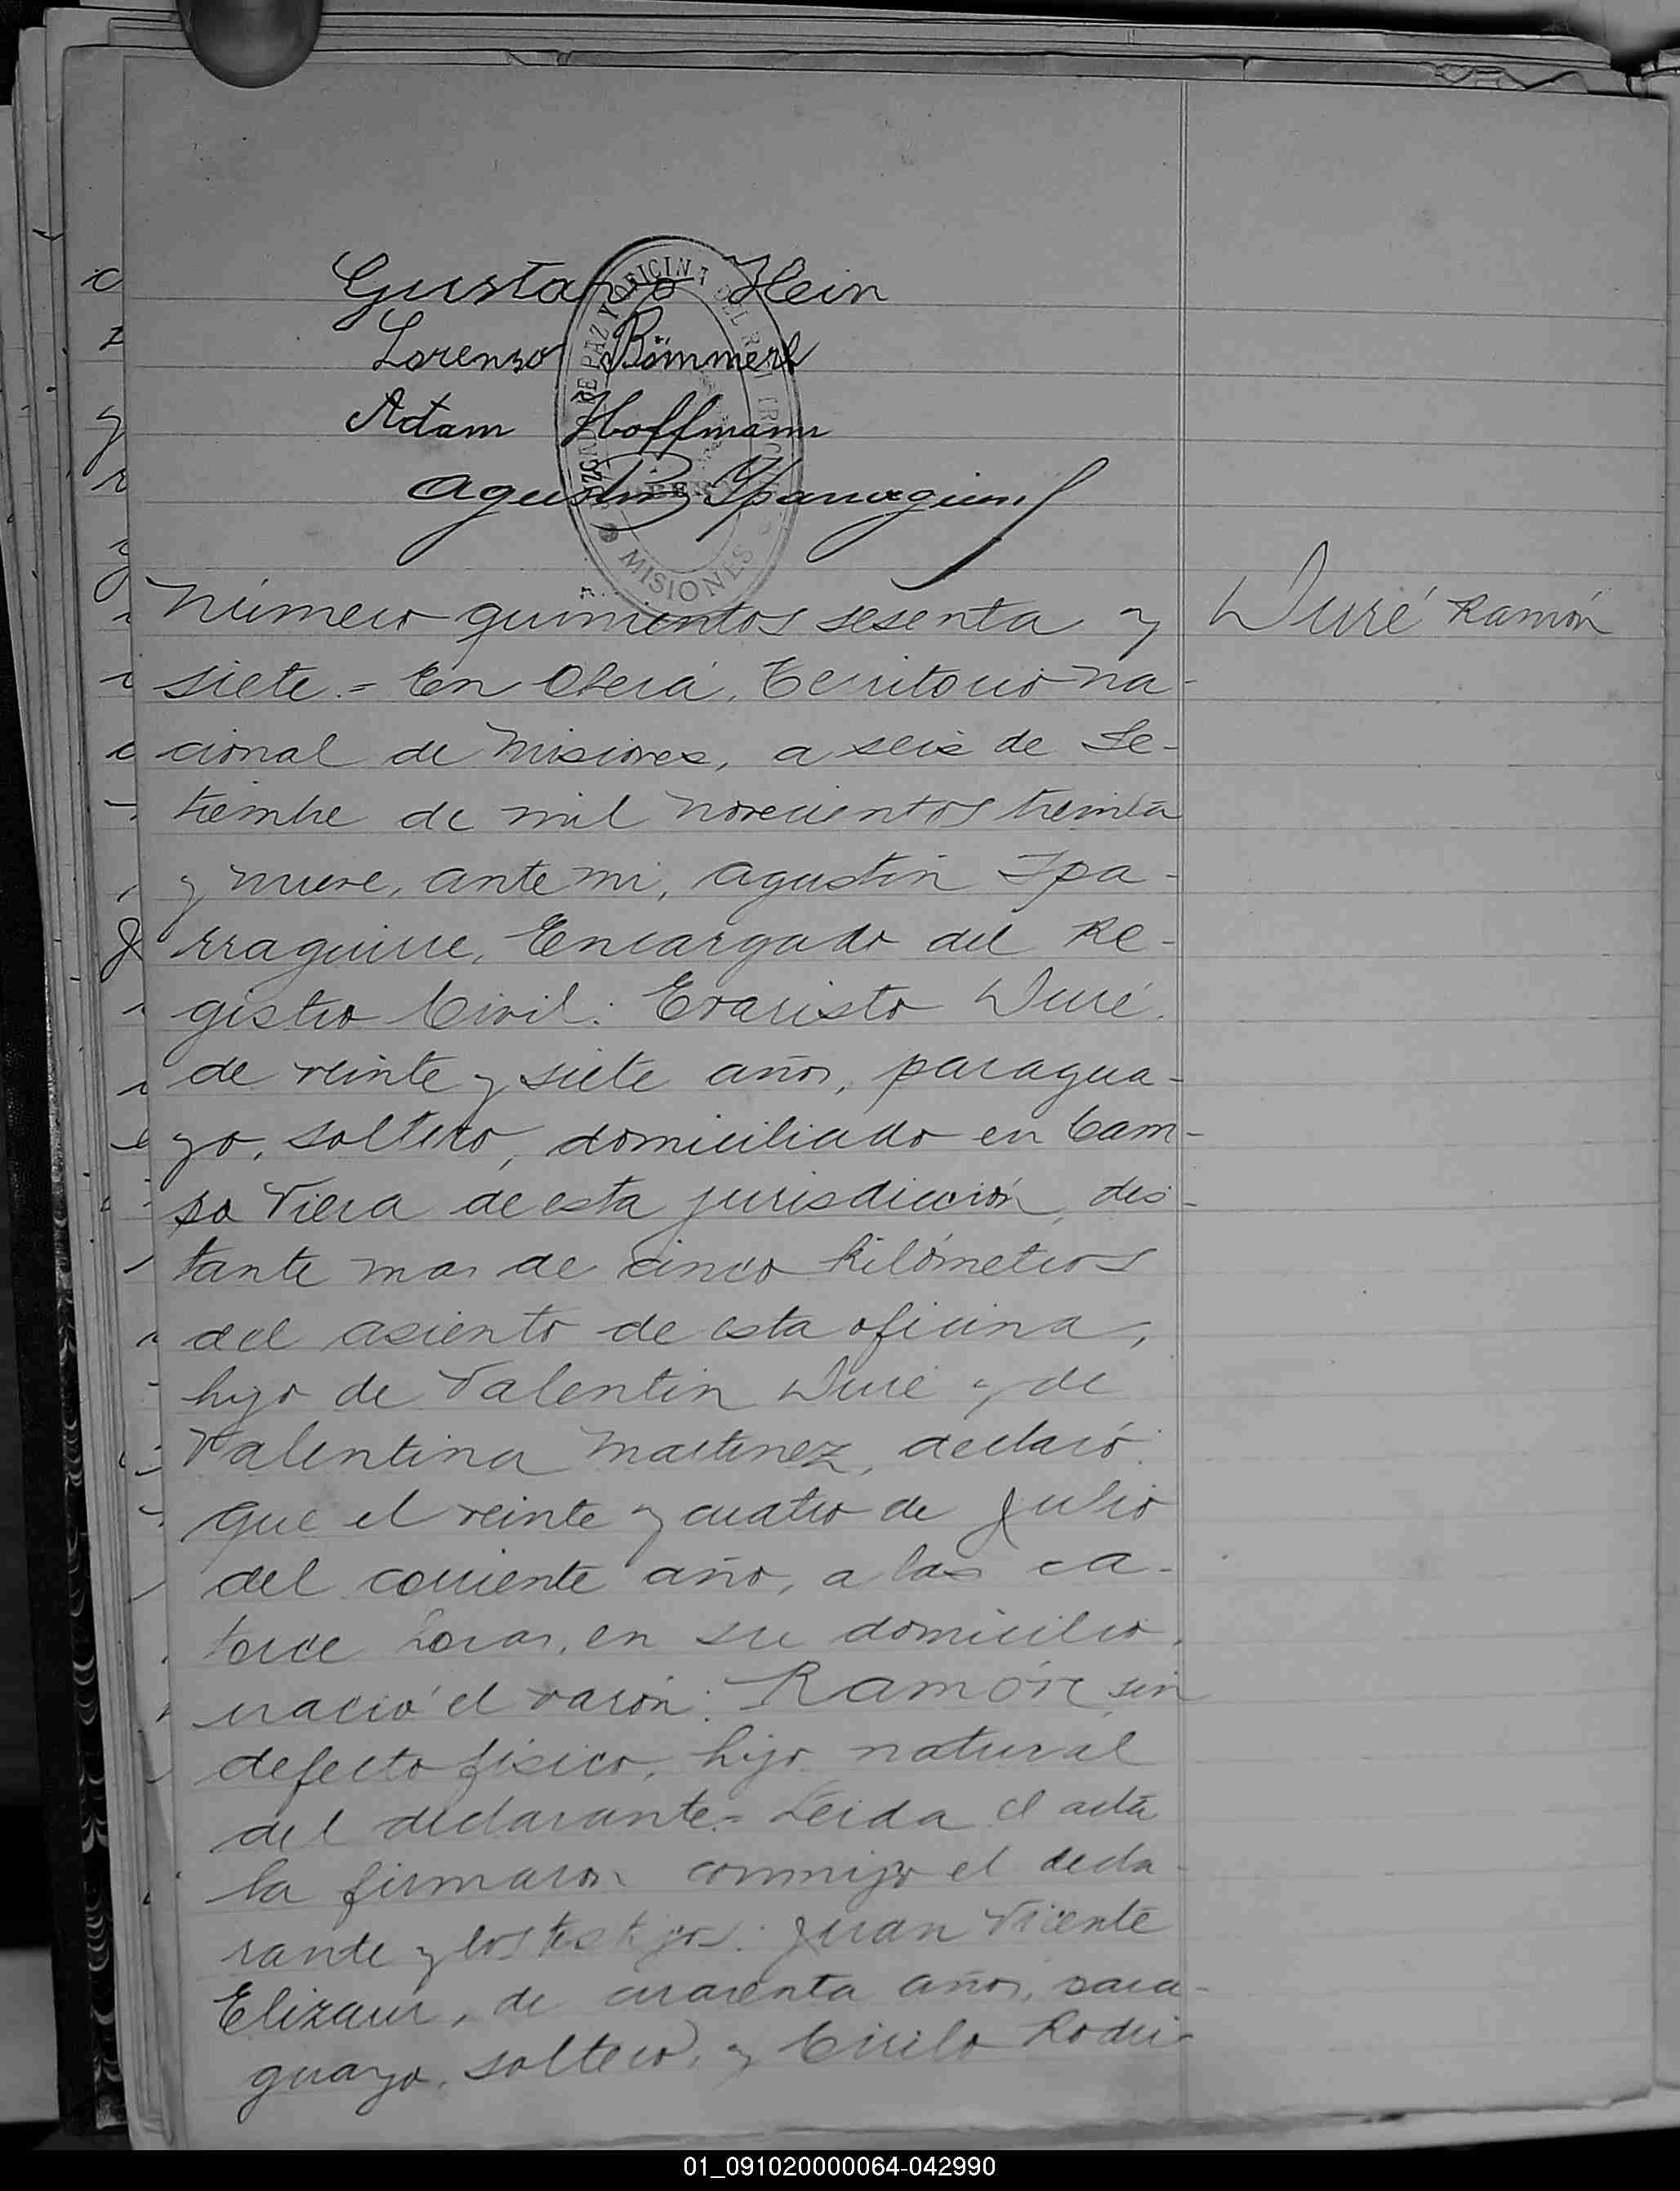 Gustavo Hein
Lorenzo Bömmerl
Adam Hoffmann
JUZGADO DE PAZ Y OFICINA DEL
MISIONES
Agustin Yparraguirre
Número quinientos sesenta y
Duré Ramón
siete.= En Oberá, Territorio Na-
cional de Misiones, a seis de Se-
tiembre de mil novecientos treinta
y nueve, ante mi, Agustin Ipa-
rraguirre, Encargado del Re-
gistro Civil: Evaristo Duré,
de veinte y siete años, paragua-
yo, soltero, domiciliado en Cam-
po Viera de esta jurisdicción, dis-
tante mas de cinco kilómetros
del asiento de esta oficina,
hijo de Valentin Duré y de
Valentina Martinez, declaró:
Que el veinte y cuatro de Julio
del corriente año, a las ca-
torce horas, en su domicilio,
nació el varón: Ramón, sin
defecto físico, hijo natural
del declarante.= Leida el acta
la firmaron conmigo el decla-
rante y los testigos: Juan Vicente
Elizaur, de cuarenta años, para-
guayo, soltero, y Cirilo Rodri-
01_091020000064-042990